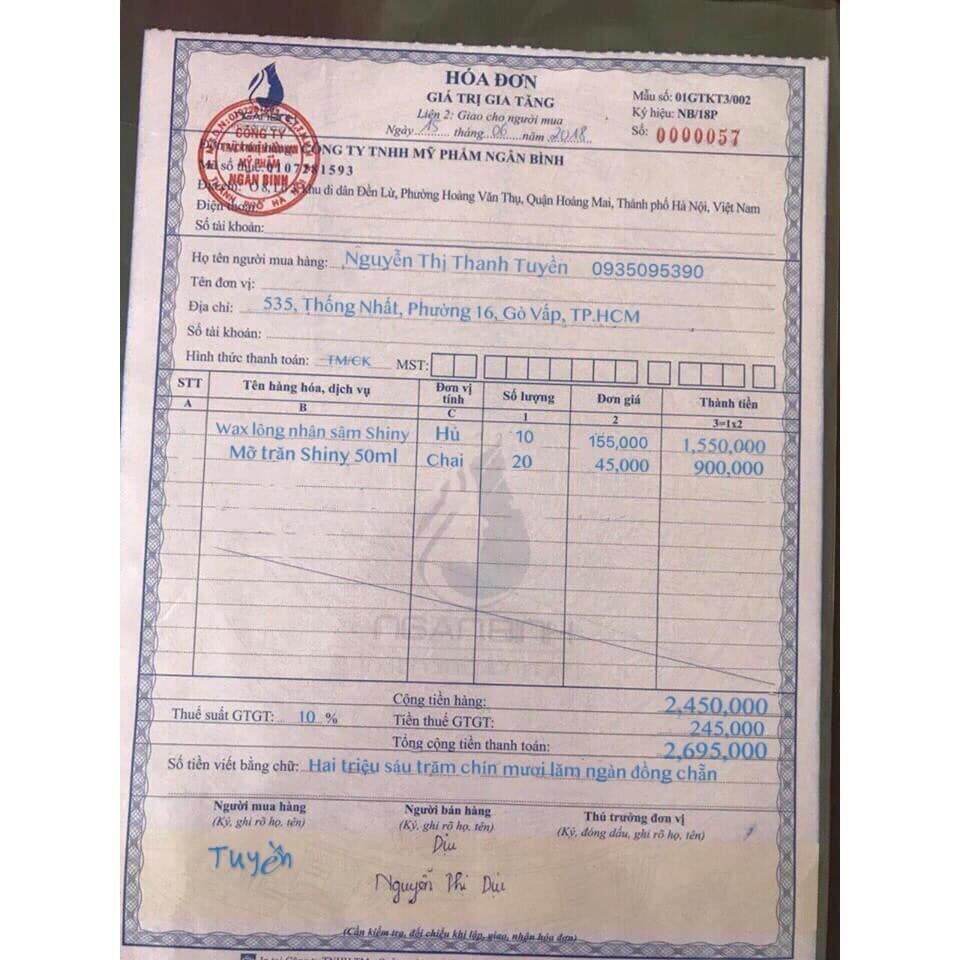 HÓA ĐƠN
GIÁ TRỊ GIA TĂNG
Liên 2: Giao cho người mua
Ngày 15 tháng 06 năm 2018
Mẫu số: 01GTKT3/002
Ký hiệu: NB/18P
Số: 0000057
CÔNG TY
MỸ PHẨM
NGÂN BÌNH
CÔNG TY TNHH MỸ PHẨM NGÂN BÌNH
Mã số thuế: 0107281593
Địa chỉ: khu di dân Đền Lừ, Phường Hoàng Văn Thụ, Quận Hoàng Mai, Thành phố Hà Nội, Việt Nam
Điện thoại:
Số tài khoản:
Họ tên người mua hàng: Nguyễn Thị Thanh Tuyền 0935095390
Tên đơn vị:
Địa chỉ: 535, Thống Nhất, Phường 16, Gò Vấp, TP.HCM
Số tài khoản:
Hình thức thanh toán: TM/CK MST:
STT Tên hàng hóa, dịch vụ Đơn vị tính Số lượng Đơn giá Thành tiền
A B C 1 2 3=1x2
Wax lông nhân sâm Shiny Hủ 10 155,000 1,550,000
Mỡ trăn Shiny 50ml Chai 20 45,000 900,000
Cộng tiền hàng: 2,450,000
Thuế suất GTGT: 10 % Tiền thuế GTGT: 245,000
Tổng cộng tiền thanh toán: 2,695,000
Số tiền viết bằng chữ: Hai triệu sáu trăm chín mươi lăm ngàn đồng chẵn
Người mua hàng Người bán hàng Thủ trưởng đơn vị
(Ký, ghi rõ họ, tên) (Ký, ghi rõ họ, tên) (Ký, đóng dấu, ghi rõ họ, tên)
Tuyền Dịu
Nguyễn Thị Dịu
(Cần kiểm tra, đối chiếu khi lập, giao, nhận hóa đơn)